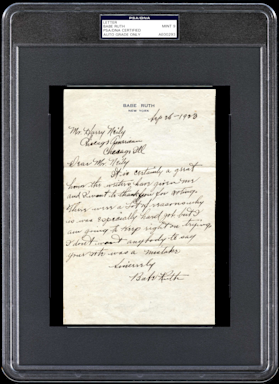 LETTER
BABE RUTH
PSA/DNA CERTIFIED
AUTO GRADE ONLY
PSA/DNA
MINT 9
BABE RUTH
NEW YORK
Sep 26 - 1923
Mr. Harry Neily
Chicago American
Chicago Ill.
Dear Mr. Neily
It is certainly a great
honor the writers have given me
and I want to thank you for voting.
There were a lot of reasons why
it was especially hard job but I
am going to keep right on trying
I don't want anybody to say
your vote was a mistake
Sincerely
Babe Ruth